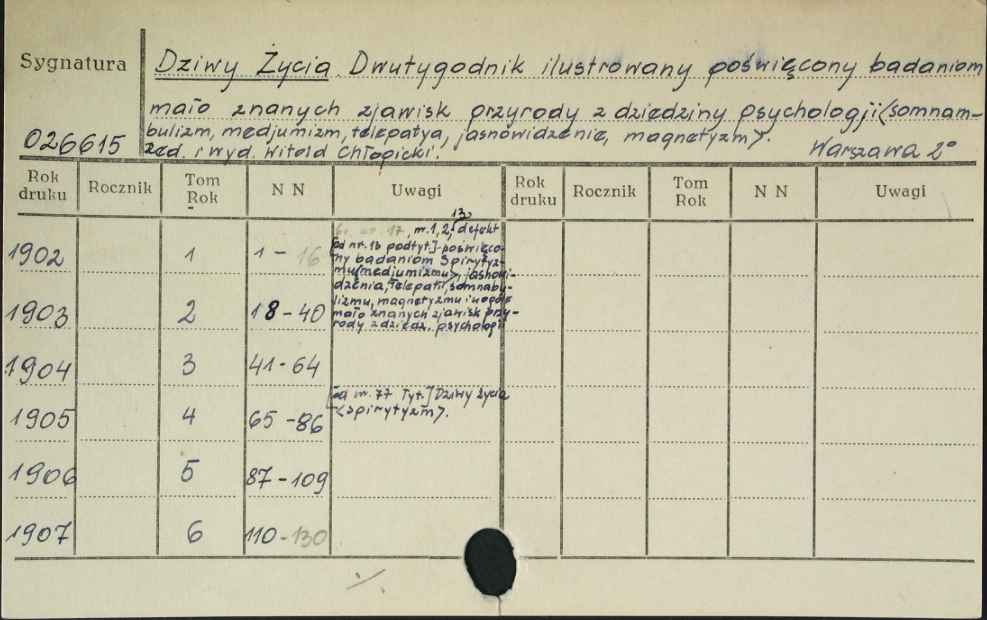 Sygnatura
Dziwy Życia. Dwutygodnik ilustrowany poświęcony badaniom
mało znanych zjawisk przyrody z dziedziny psychologji (somnam-
bulizm, medjumizm, telepatya, jasnowidzenie, magnetyzm).
026615 Red. i wyd. Witold Chłopicki. Warszawa 2°
Rok druku Rocznik Tom Rok N N Uwagi Rok druku Rocznik Tom Rok N N Uwagi
13
nr. 17, nr. 1, 2, defekt
1902 1 1 - 16 [od nr. 16 podtyt.] poświęco-
ny badaniom Spirytyz-
mu (medjumizmu), jasnowi-
dzenia, telepatii, somnabu-
1903 2 18 - 40 lizmu, magnetyzmu i wogóle
mało znanych zjawisk przy-
rody z dziedz. psychologii
1904 3 41 - 64
[od nr. 77 Tyt.] Dziwy życia
1905 4 65 - 86 (spirytyzm).
1906 5 87 - 109
1907 6 110 - 130